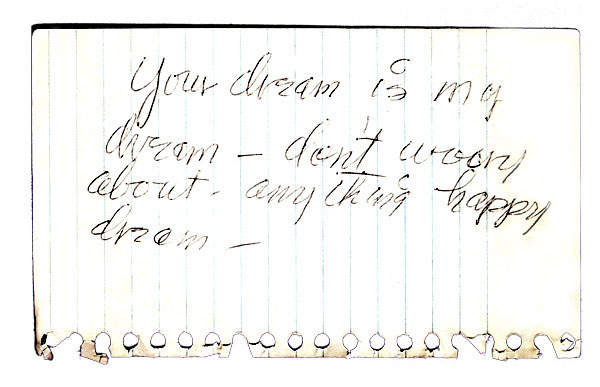 Your dream is my
dream - don't worry
about - anything happy
dream -